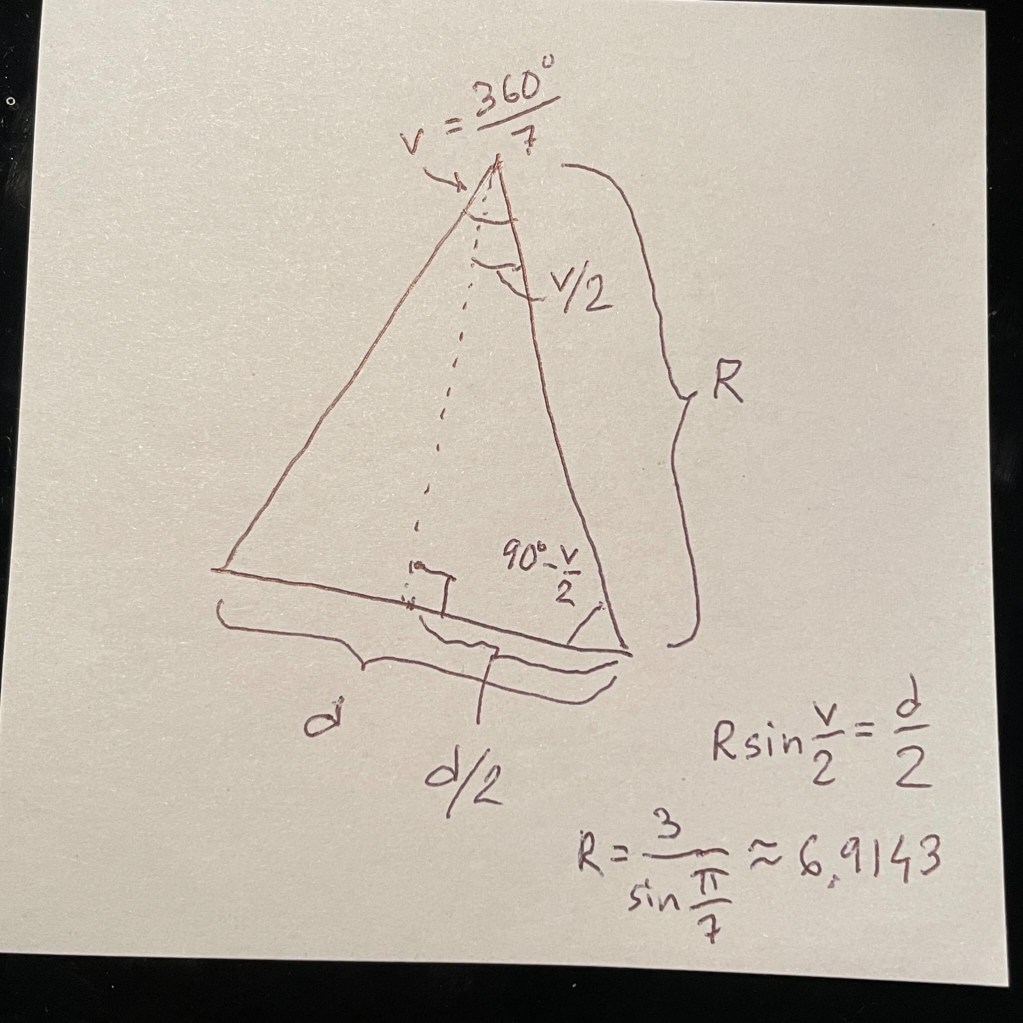 v = 360°/7
v/2
R
90° - v/2
d
d/2
R sin v/2 = d/2
R = 3/sin π/7 ≈ 6,9143